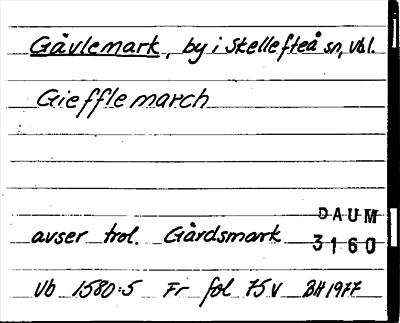 Gävlemark, by i Skellefteå sn, Vbl.
Giefflemarch
DAUM
avser trol. Gärdsmark 3160
Vb 1580:5 Fr fol 75v BH 1977